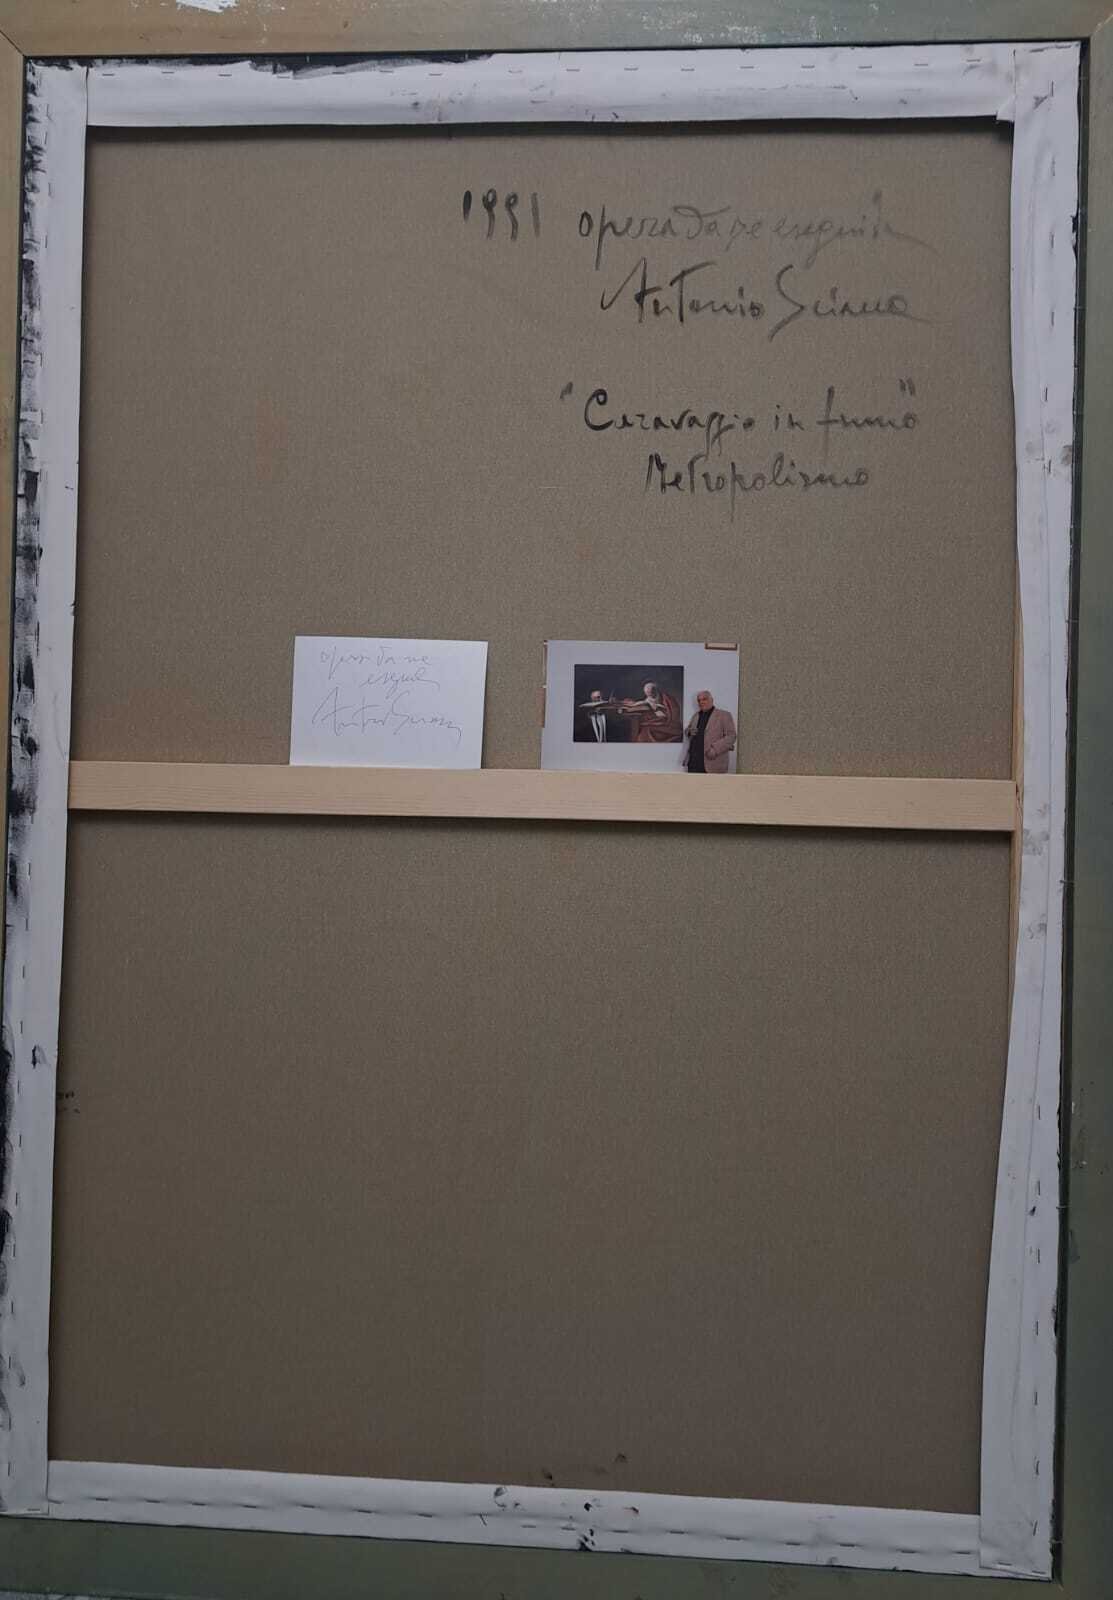 1991 opera da me eseguita
Antonio Sciacca
"Caravaggio in fumo"
Metropolismo
opera da me
eseguita
Antonio Sciacca